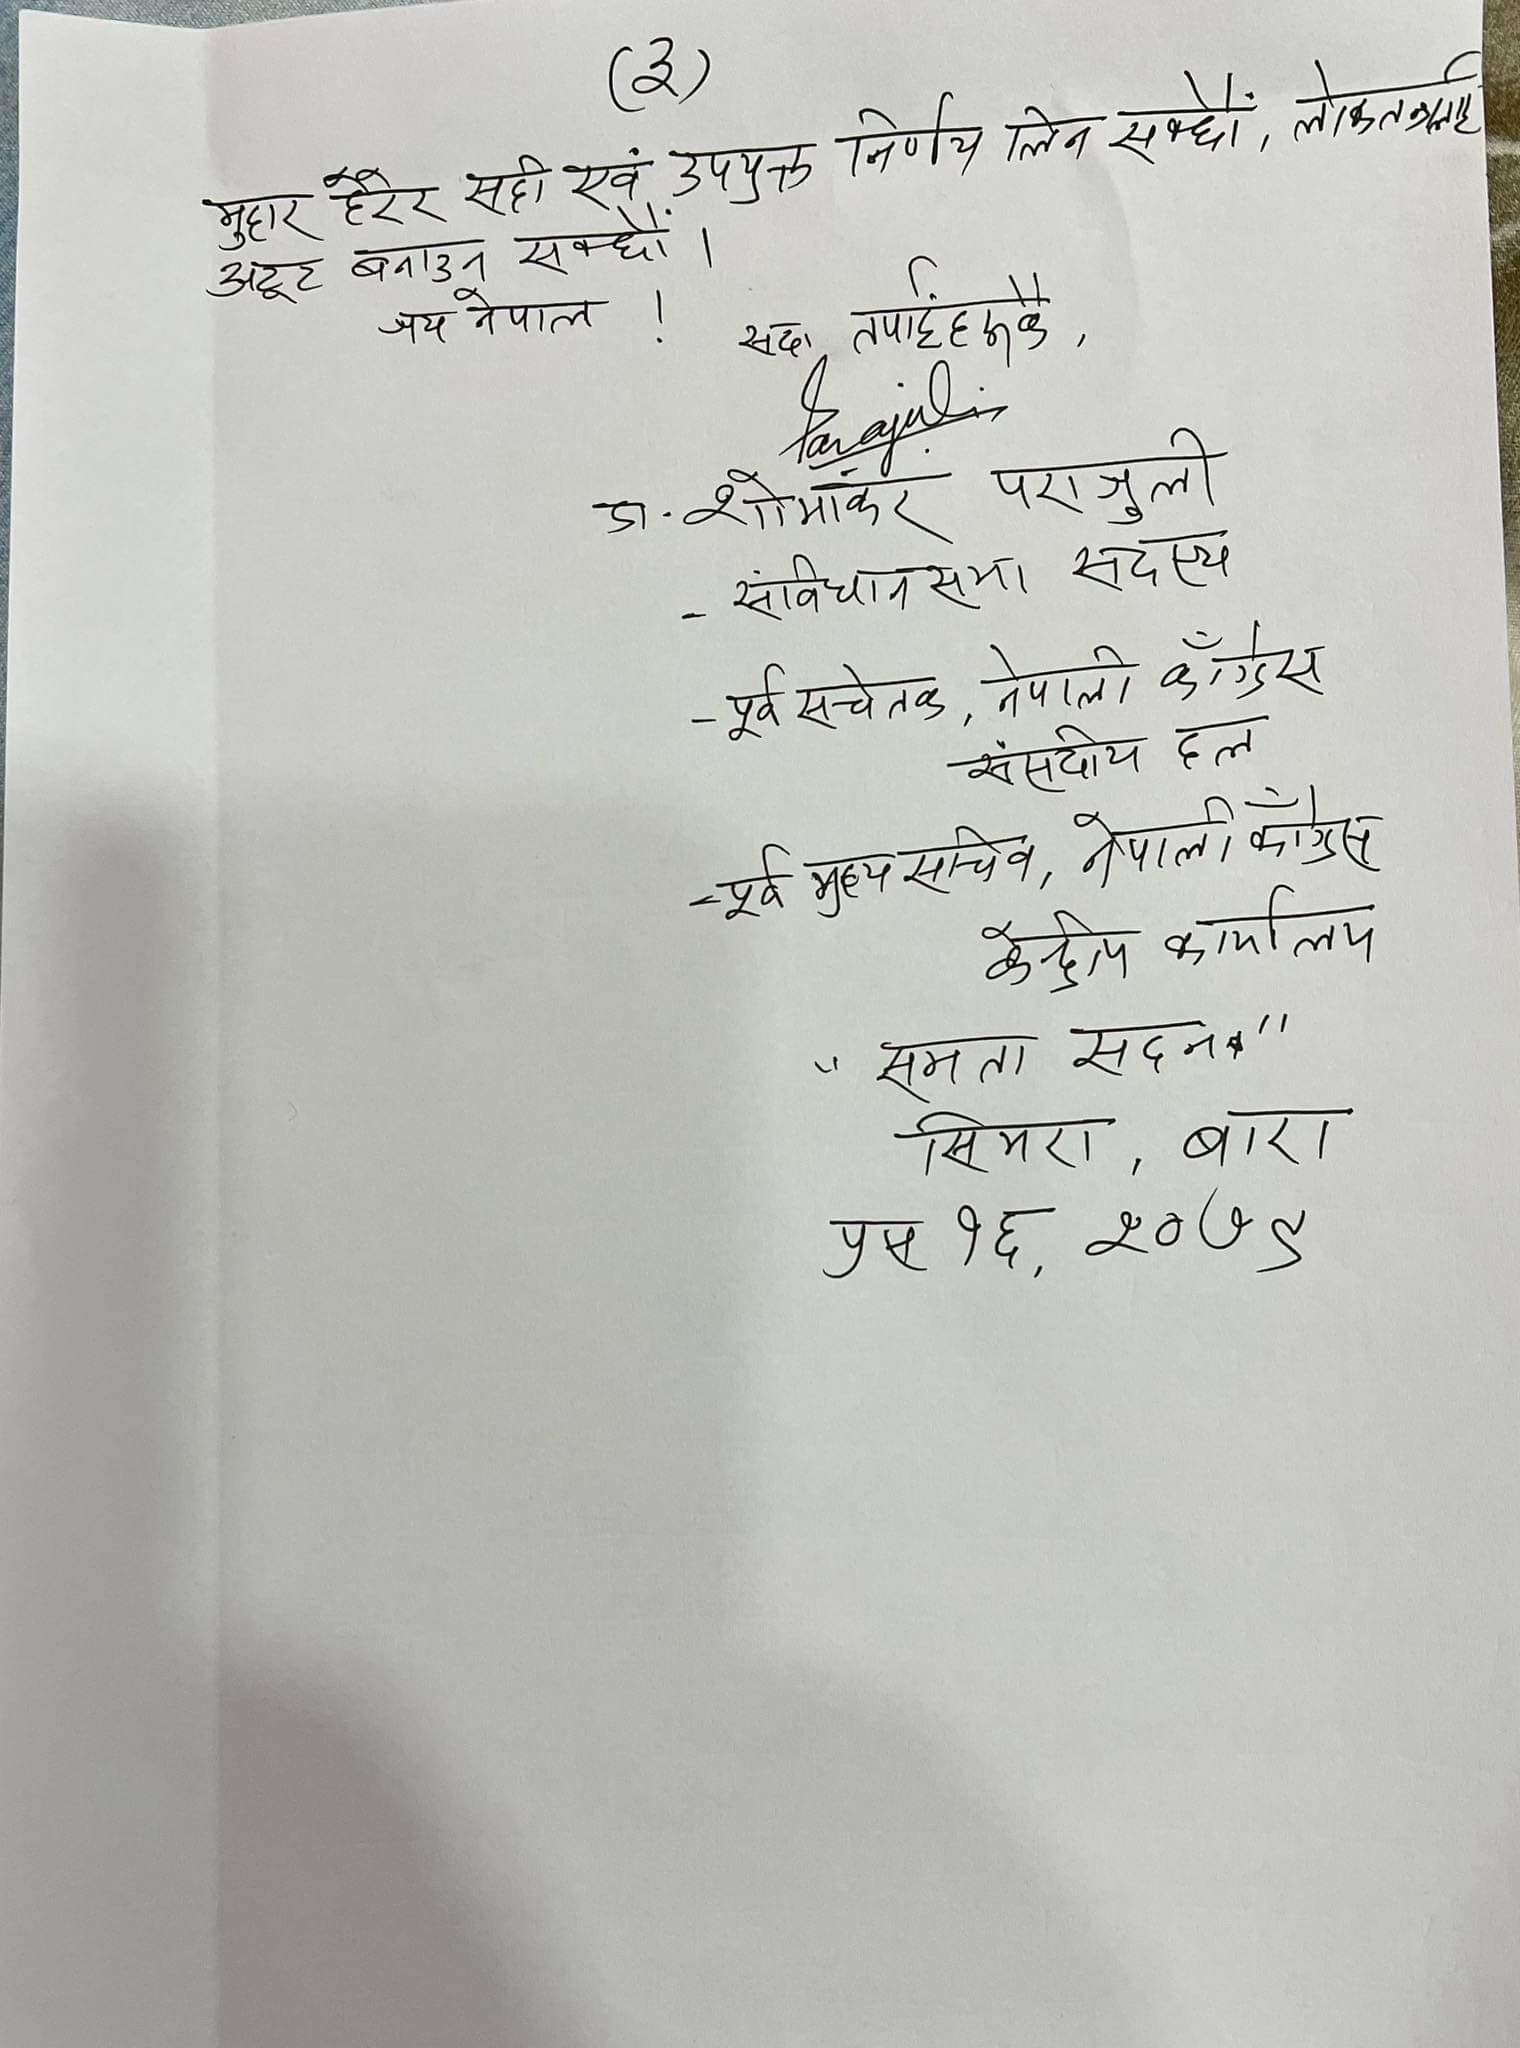 (३)
मुहार हेरेर सही एवं उपयुक्त निर्णय लिन सक्छौं, लोकतन्त्रलाई
अटूट बनाउन सक्छौं।
जय नेपाल !
सदा तपाईंहरूकै,
Parajuli
डा. शोभाकर पराजुली
- संविधानसभा सदस्य
- पूर्व सचेतक, नेपाली काँग्रेस
संसदीय दल
- पूर्व मुख्य सचिव, नेपाली काँग्रेस
केन्द्रीय कार्यालय
"समता सदन"
सिमरा, बारा
पुस १६, २०७९